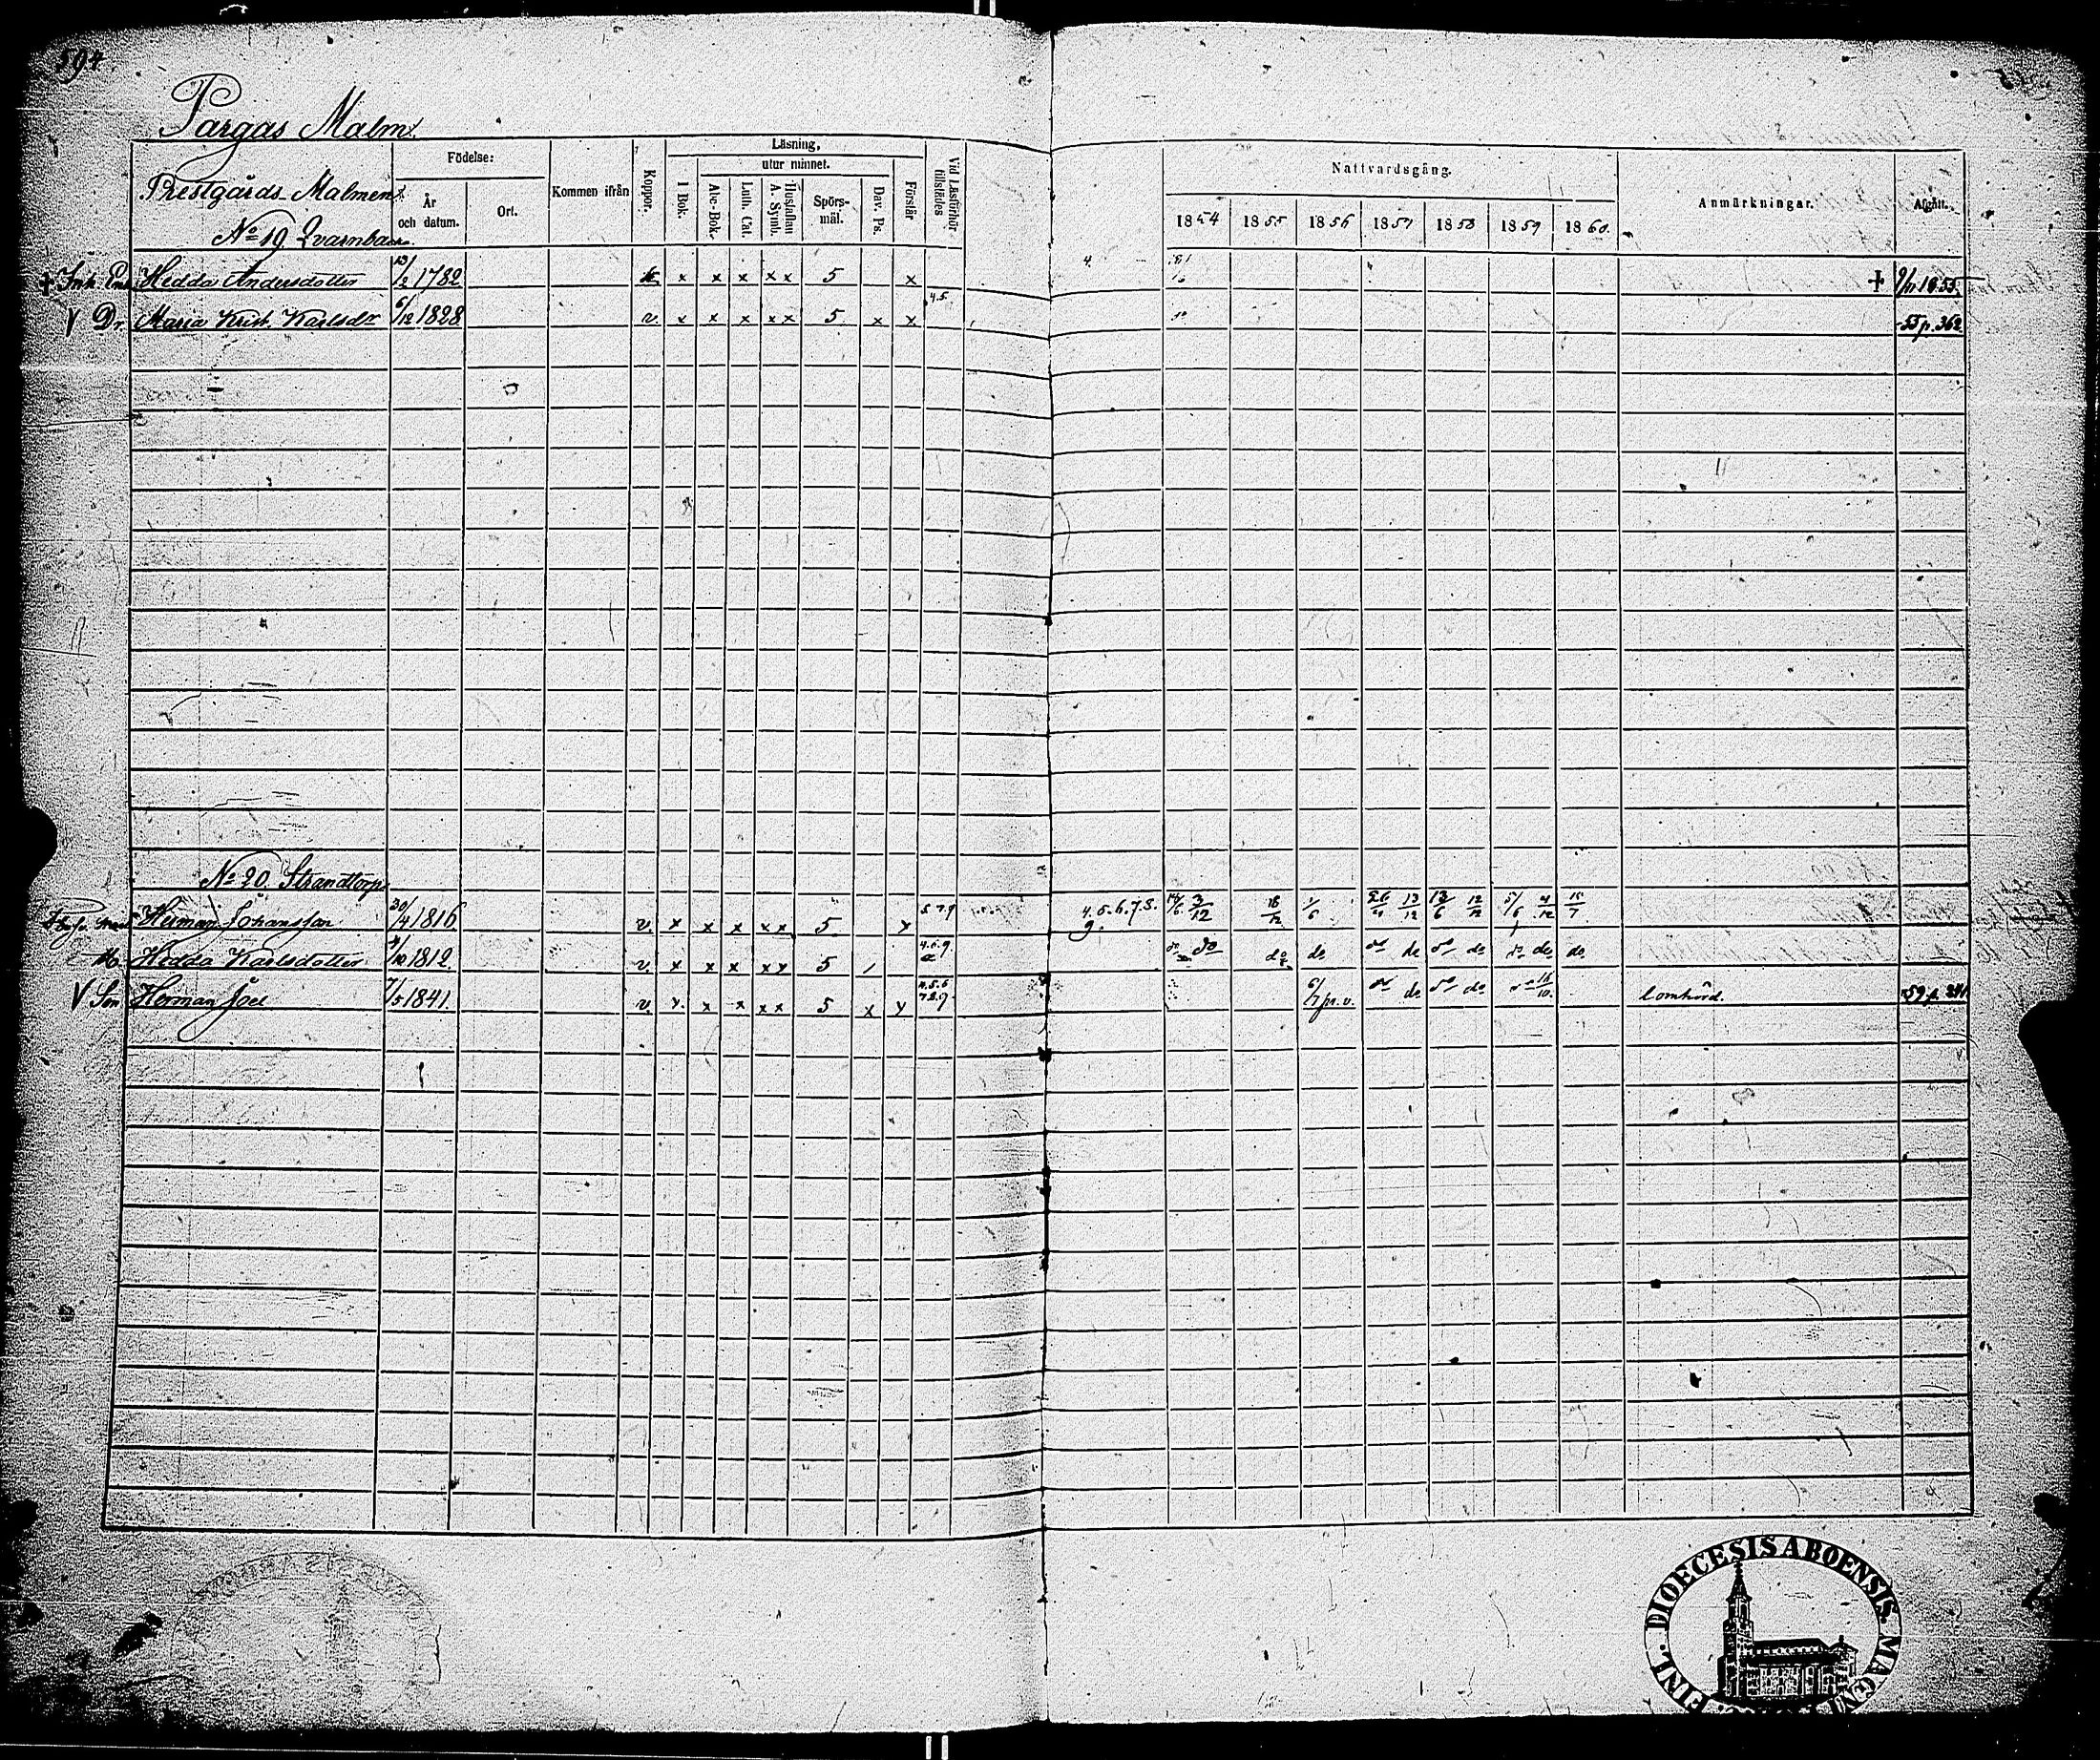 594
Pargas Malm.
Prestgårds-Malmen.
Födelse:
År och datum.
Ort.
Kommen ifrån
Koppor.
Läsning,
utur minnet.
I Bok.
Abc-Bok.
Luth. Cat.
Hustaflan A. Symb.
Spörsmål.
Dav. Ps.
Förstår
Vid Läsförhör tillstädes
Nattvardsgång.
1854 1855 1856 1857 1858 1859 1860.
Anmärkningar.
Afgått.
No 19 Qvarnbacka
Hedda Andersdotter 13/2 1782 x x x x x 5 x 4. + 9/11 1855.
V Dr. Maria Krist. Karlsdr 6/12 1828 v. x x x x x 5 x x 4.5. 55 p. 362
No 20. Strandtorp
Herman Johansson 30/4 1816 v. x x x x x 5 x 5 7 9 4.5.6.7.8. 9. 3/12 18/12 1/6 26/4 13/12 13/6 12/12 5/6 4/12 15/7
H. Hedda Karlsdotter 4/10 1812. v. x x x x x 5 / 4.6.9. do do do do do do do do do do do
V Son Herman Joel 7/5 1841. v. x. x x x x 5 x x 4.5.6 7.8.9. 6/7 pr. v. do do do do 16/10. lomhörd. 59 p. 341
FINL. DIOECESIS ABOENSIS. MAGNI